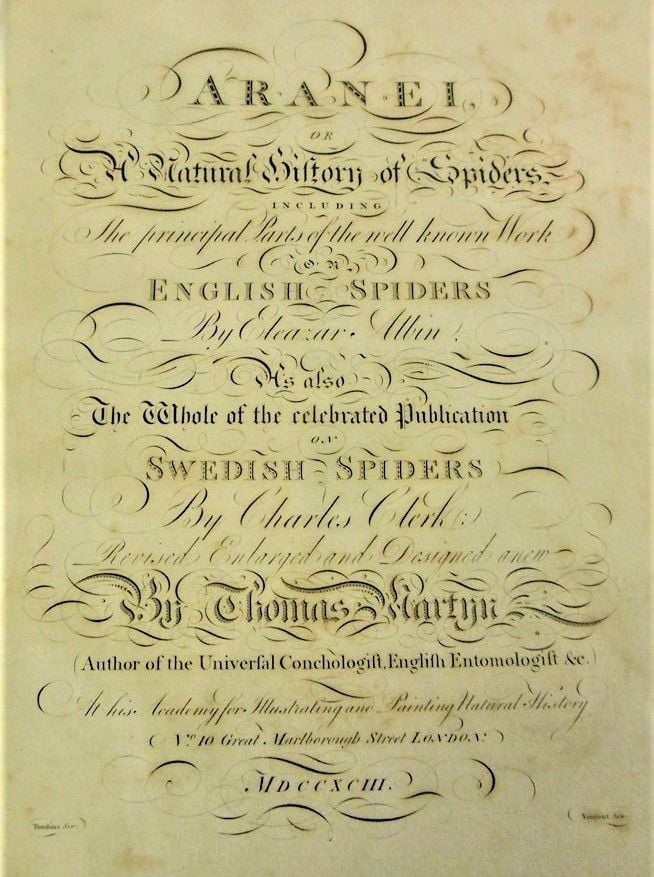 ARANEI,
OR
A Natural History of Spiders,
INCLUDING
The principal Parts of the well known Work
ON
ENGLISH SPIDERS
By Eleazar Albin.
As also
The Whole of the celebrated Publication
ON
SWEDISH SPIDERS
By Charles Clerk:
Revised Enlarged and Designed anew
By Thomas Martyn
(Author of the Univerſal Conchologiſt, Engliſh Entomologiſt &c.)
At his Academy for Illustrating and Painting Natural History
No. 10 Great Marlborough Street LONDON:
MDCCXCIII.
Tomkins Scr.
Vincent Scu.